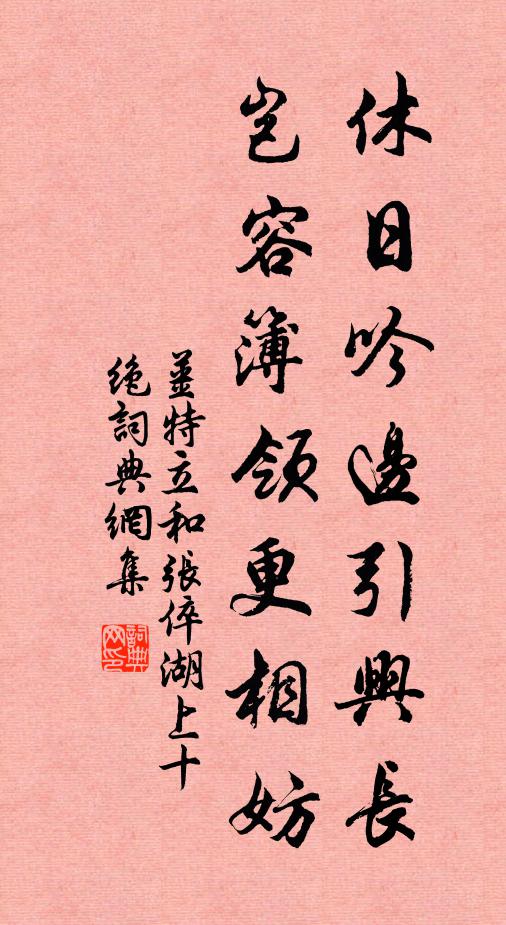 休日吟邊引興長
豈容簿領更相妨
姜特立和張倅湖上十
絕詞典網集
詞典网印